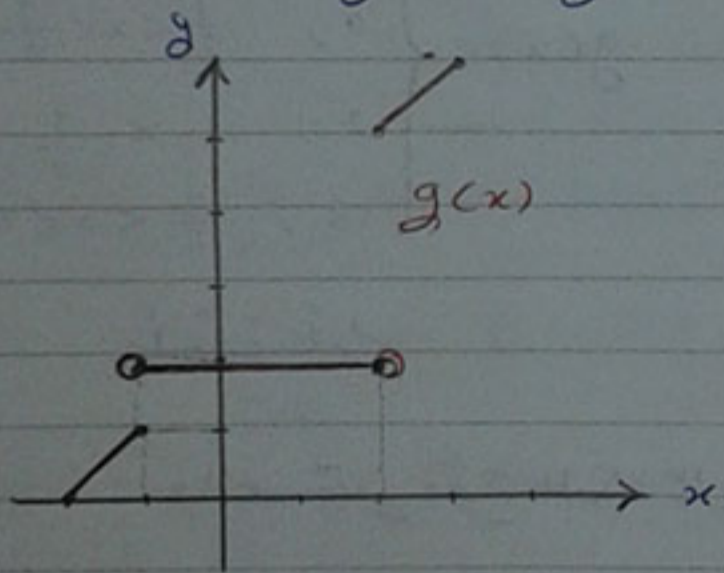 y
g(x)
x